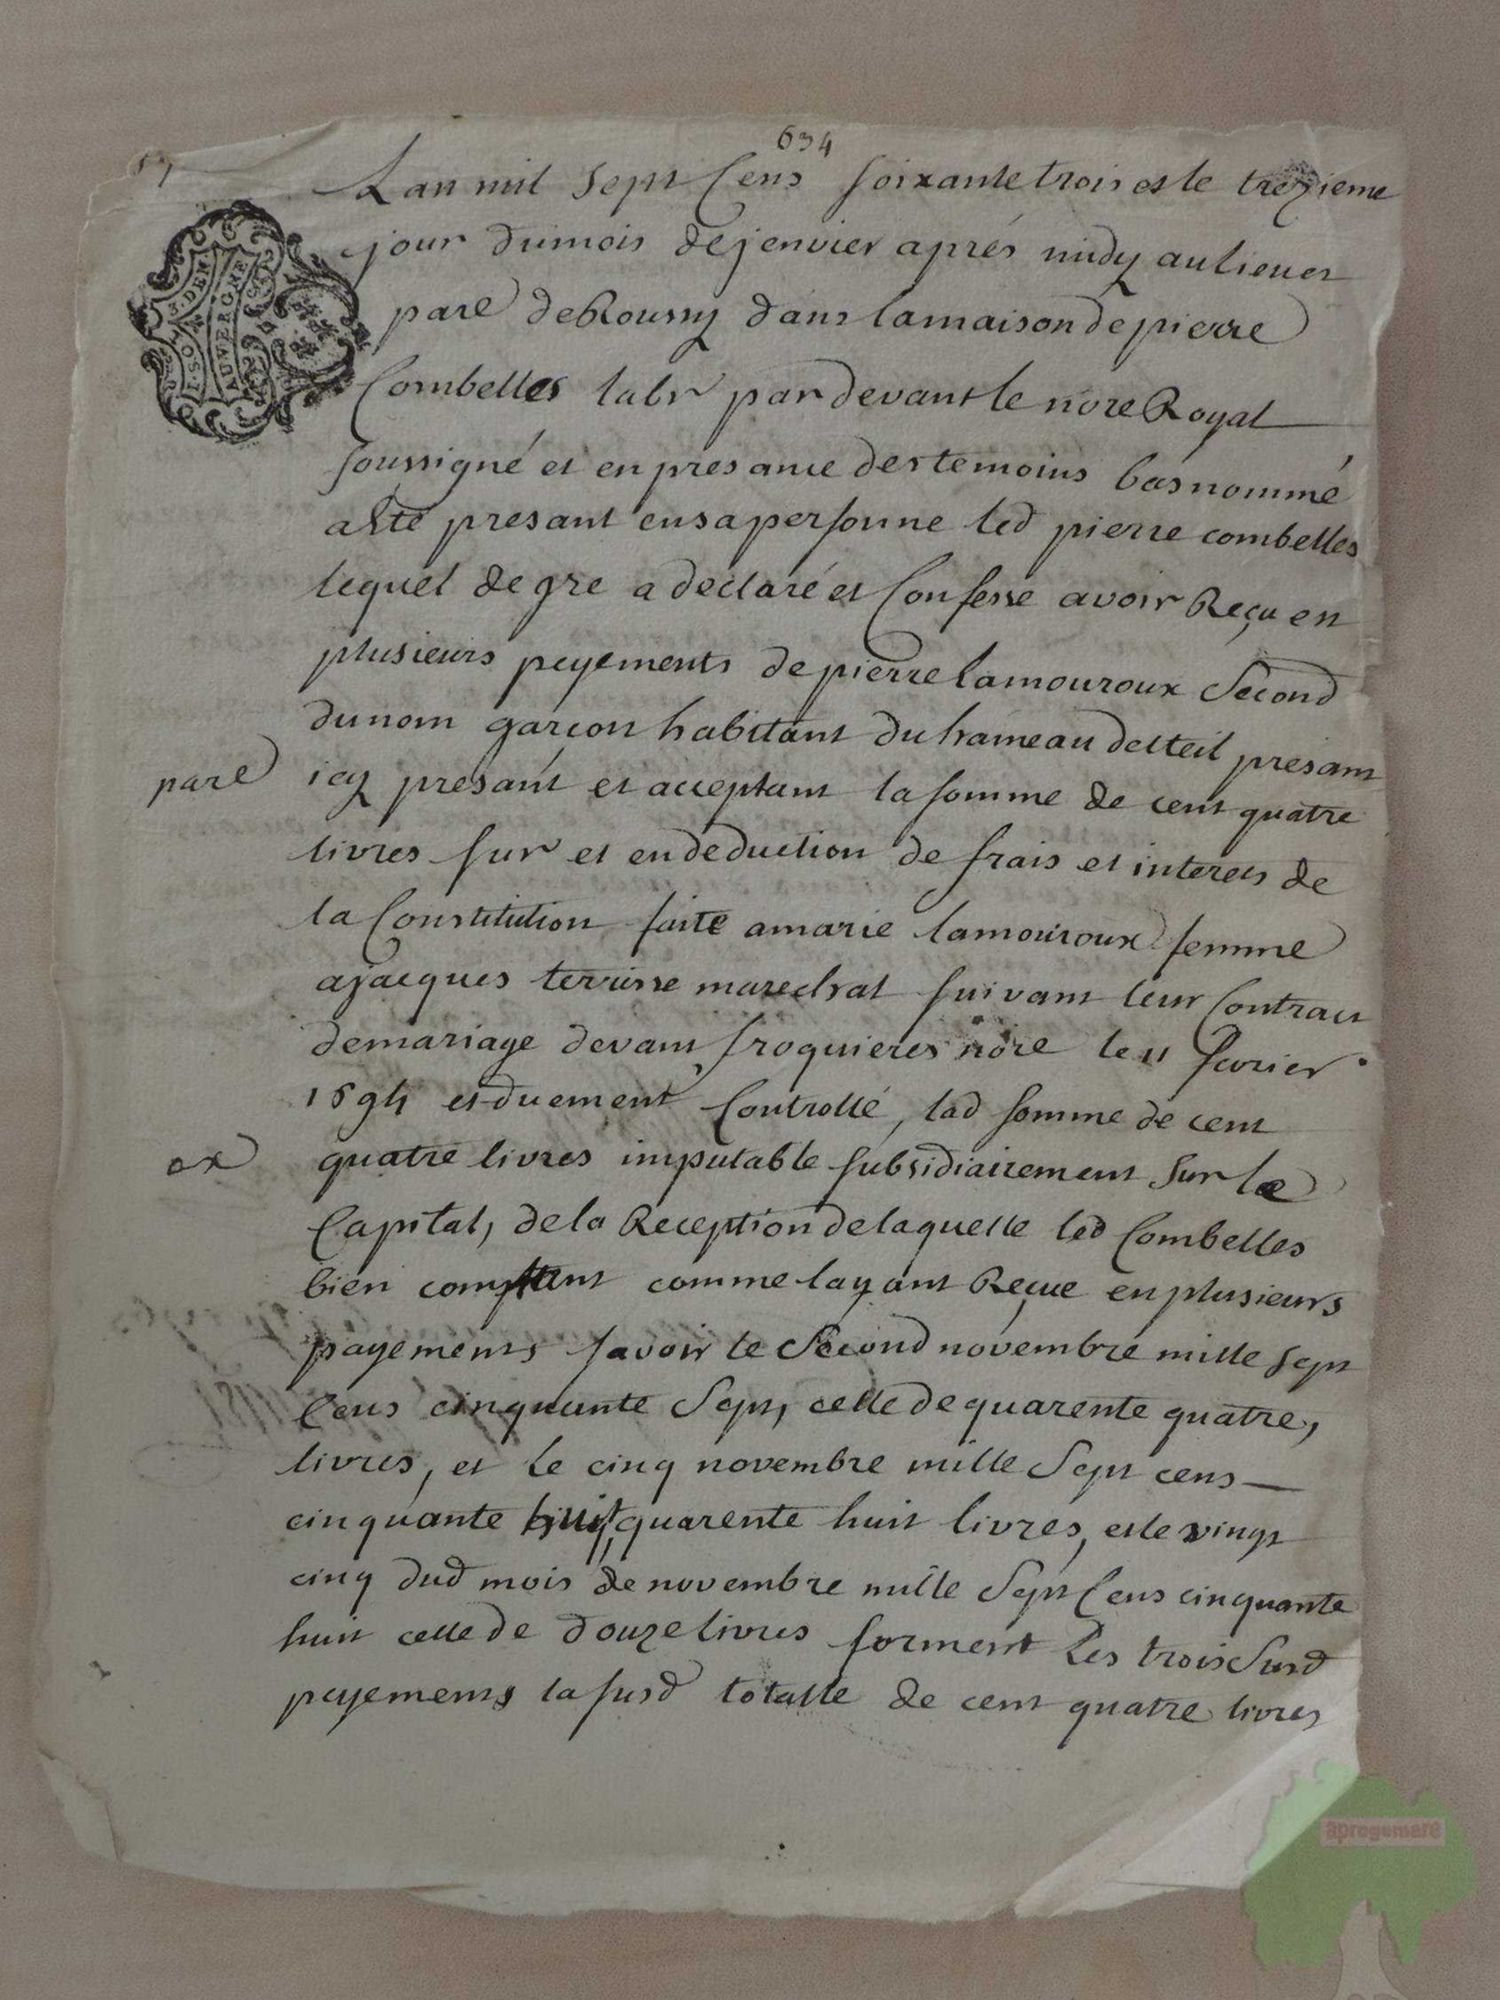 634
57
L'an mil sept Cens soixante trois et le trezieme
jour du mois de jenvier aprés midy au lieu et
pare de Roussy dans la maison de pierre
3. DEN
P. SOLS
AUVERGNE
Combelles labr par devant le nore Royal
soussigné et en presance des temoins bas nommé
a esté presant en sa personne led pierre combelles
lequel de gre a declaré et Confesse avoir Reçu en
plusieurs peyements de pierre lamouroux Second
du nom garçon habitant du hameau del teil presant
pare icy presant et acceptant la somme de cent quatre
livres sur et en deduction de frais et interets de
la Constitution faite a marie lamouroux femme
a jacques terrisse marechal suivant leur Contract
de mariage devant froquieres nore le 11 fevrier
1694 et duement Controllé, lad somme de cent
ox quatre livres imputable subsidiairement sur le
Capital, de la Reception de laquelle led Combelles
bien comptent comme layant Reçue en plusieurs
payements savoir le Second novembre mille sept
Cens cinquante Sept, celle de quarente quatre,
livres, et le cinq novembre mille Sept cens
cinquante huit, quarente huit livres, et le vingt
cinq dud mois de novembre mille Sept Cens cinquante
huit celle de douze livres forment les trois Susd
peyements la susd totalle de cent quatre livres
aprogemere